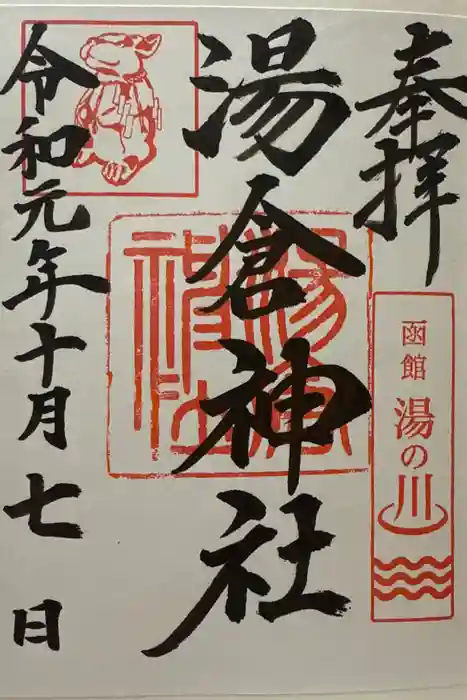 奉拝
函館 湯の川
湯倉神社
湯倉神社
令和元年十月七日